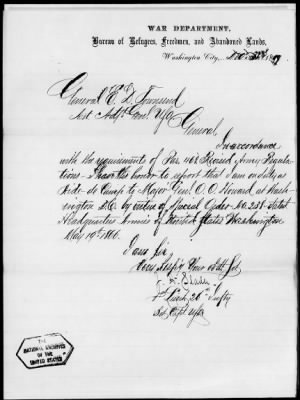 WAR DEPARTMENT,
Bureau of Refugees, Freedmen, and Abandoned Lands,
Washington City,
General E. D. Townsend
Asst Adjt Genl
General,
In accordance
with the requirements of Par. Revised Army Regula
tions I have the honor to report that I am on duty as
Aide de Camp to Major Genl. O. O. Howard, at Wash
ington D.C. by virtue of Special Order No. 238
Headquarters Armies of United States Washington
May 19th 1866.
I am Sir
Very Respy Your Obt. Svt
1st Lieut 26th Infty
THE
NATIONAL ARCHIVES
OF THE
UNITED STATES